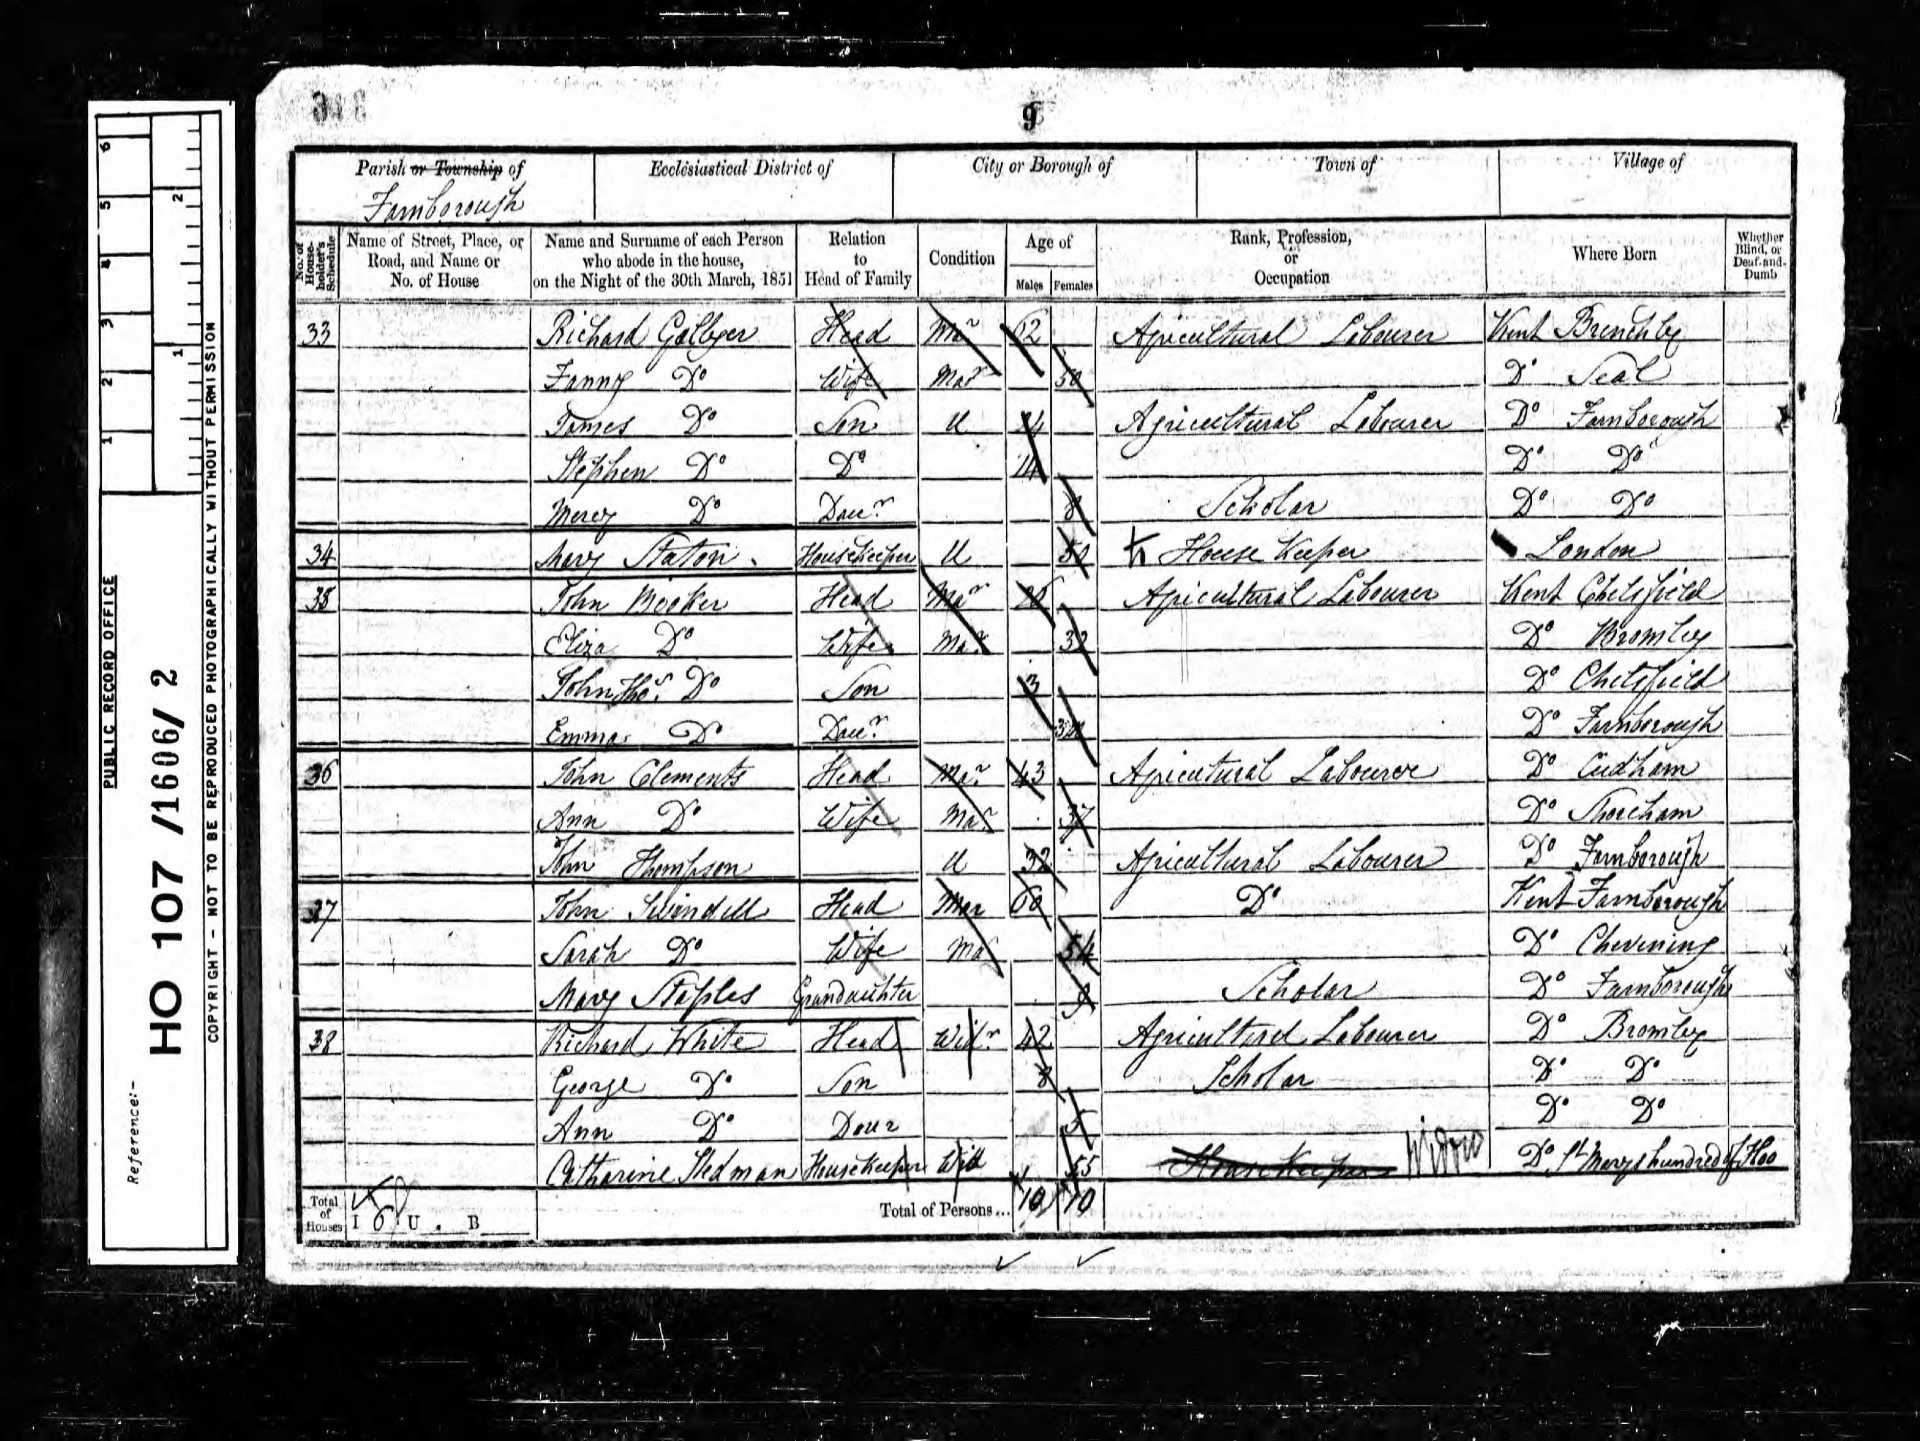 9
Parish or Township of
Farnborough
Ecclesiastical District of
City or Borough of
Town of
Village of
No. of Householder's Schedule
Name of Street, Place, or Road, and Name or No. of House
Name and Surname of each Person who abode in the house, on the Night of the 30th March, 1851
Relation to Head of Family
Condition
Age of
Males Females
Rank, Profession, or Occupation
Where Born
Whether Blind, or Deaf-and-Dumb
33 Richard Head Mar 62 Agricultural Labourer Kent Brenchly
Fanny Do Wife Mar 50 Do Seal
James Do Son U Agricultural Labourer Do Farnborough
Stephen Do Do 14 Do Do
Mercy Do Daur 8 Scholar Do Do
34 Mary Staton Housekeeper U House Keeper London
35 John Booker Head Mar 26 Agricultural Labourer Kent Chelsfield
Eliza Do Wife Mar 32 Do Bromley
John Thos Do Son 3 Do Chelsfield
Emma Do Daur Do Farnborough
36 John Clements Head Mar 43 Agricutural Labourer Do Cudham
Ann Do Wife Mar 37 Do Shoreham
John Thompson U 32 Agricultural Labourer Do Farnborough
37 John Swindell Head Mar 60 Do Kent Farnborough
Sarah Do Wife Mar 54 Do Chevening
Mary Staples Grandaughter Scholar Do Farnborough
38 Richard White Head Widr 42 Agricultural Labourer Do Bromley
George Do Son 8 Scholar Do Do
Ann Do Daur 5 Do Do
Catharine Stedman Housekeeper Wid 55 House Keeper Widow Do St Marys hundred of Hoo
Total of Houses I 6 U B Total of Persons... 10 10
PUBLIC RECORD OFFICE
Reference:-
HO 107 /1606/ 2
COPYRIGHT - NOT TO BE REPRODUCED PHOTOGRAPHICALLY WITHOUT PERMISSION
1 2 3 4 5 6
1 2